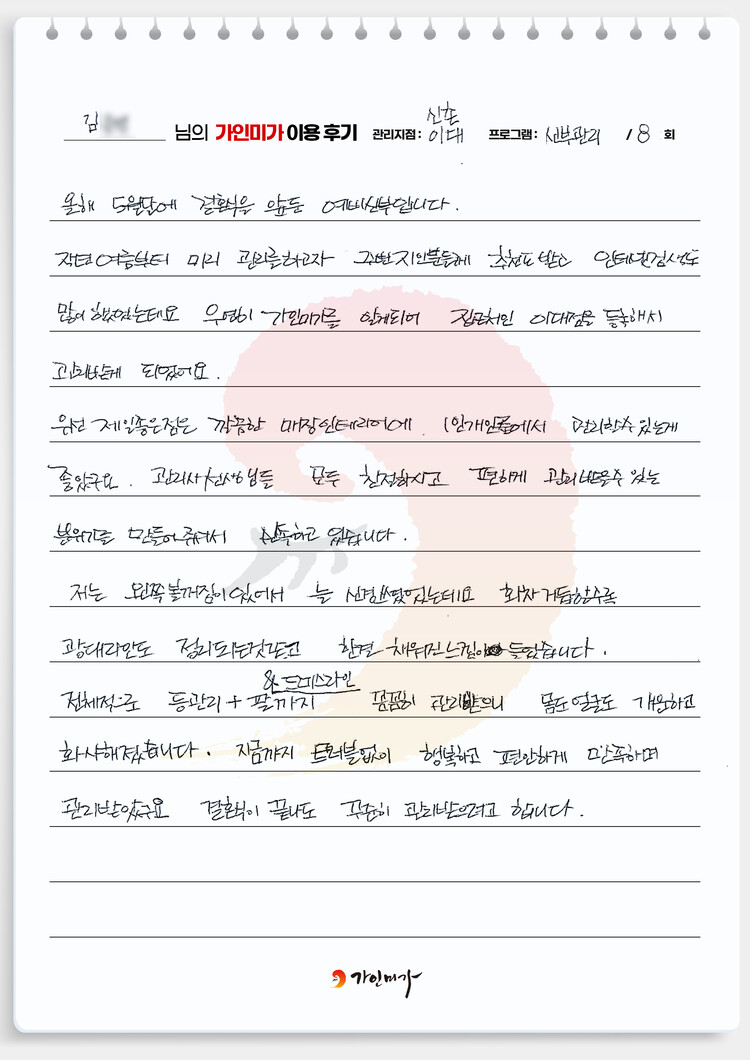 김 님의 가인미가 이용 후기 관리지점 : 신촌 이대 프로그램 : 신부관리 / 8 회
올해 5월달에 결혼식을 앞둔 예비신부입니다.
작년 여름부터 미리 관리를하고자 주변지인분들께 추천도 받고 인터넷검색도
많이 했었는데요 우연히 가인미가를 알게되어 집근처인 이대점을 등록해서
관리받게 되었어요.
우선 제일좋은점은 깔끔한 매장인테리어에 1인개인룸에서 관리할수있는게
좋았구요. 관리사선생님들 모두 친절하시고 편하게 관리받을수 있는
분위기를 만들어주셔서 만족하고 있습니다.
저는 왼쪽볼꺼짐이있어서 늘 신경쓰였었는데요 회차거듭할수록
광대라인도 정리되는것같고 한결 채워진느낌이 들었습니다.
& 드레스라인
전체적으로 등관리 + 팔까지 꼼꼼히 관리받으니 몸도 얼굴도 개운하고
화사해졌습니다. 지금까지 트러블없이 행복하고 편안하게 만족하며
관리받았구요 결혼식이 끝나도 꾸준히 관리받으려고 합니다.
가인미가